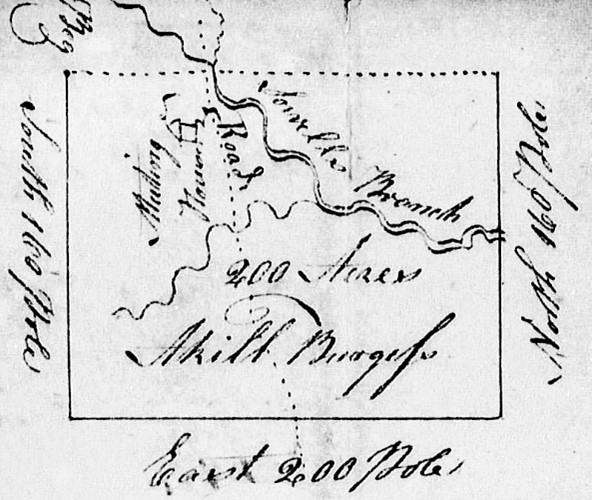 Beg
South 160 Pole
Meeting
House
Road
Sowells Branch
200 Acres
Akill Burgess
North 160 Pole
East 200 Pole